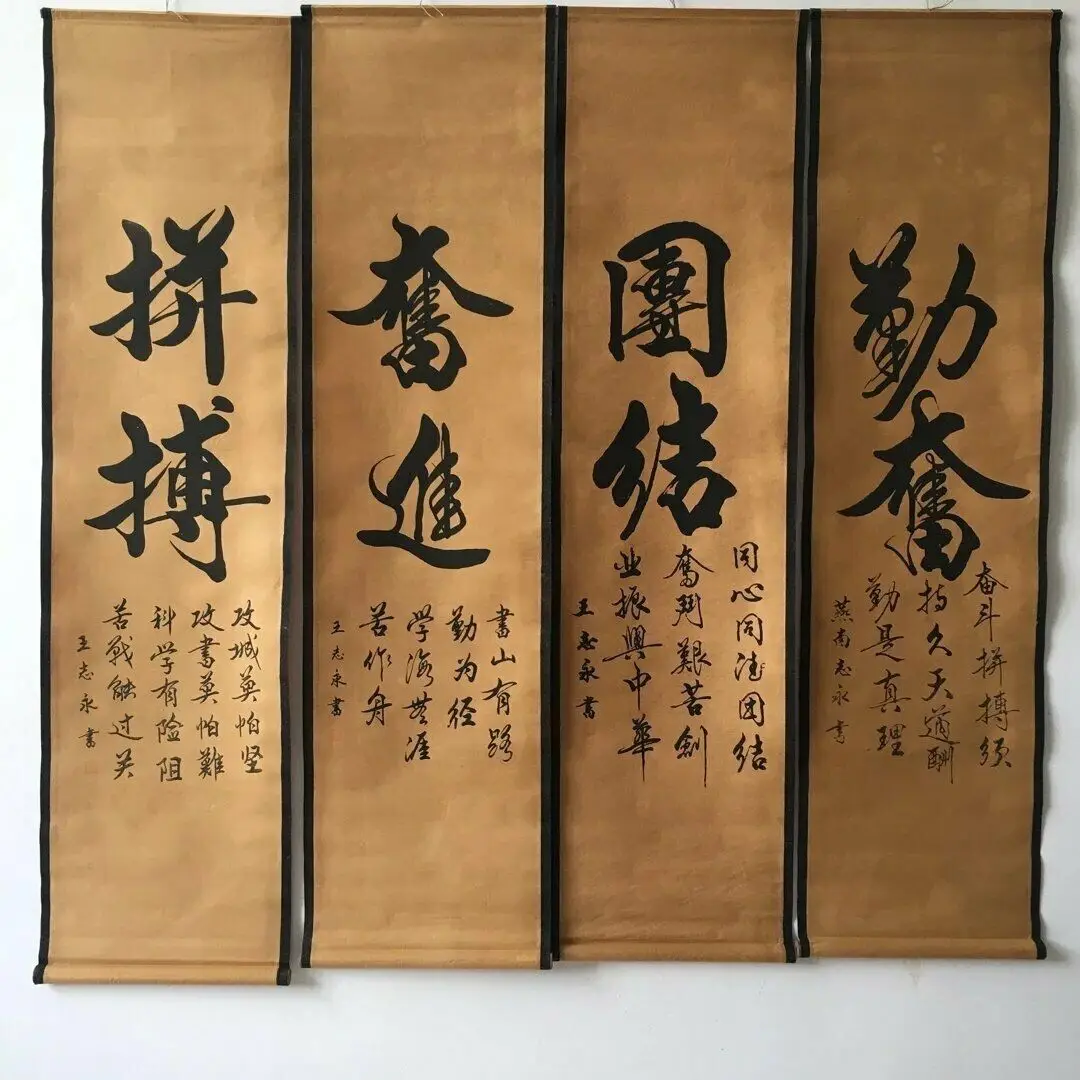 勤奮
奋斗拼搏须
持久天道酬
勤是真理
燕南志永书
團結
同心同德团结
奮鬥艱苦創
业振興中華
王志永書
奮進
書山有路
勤为径
学海無涯
苦作舟
王志永書
拼搏
攻城莫怕坚
攻書莫怕難
科学有险阻
苦战能过关
王志永書